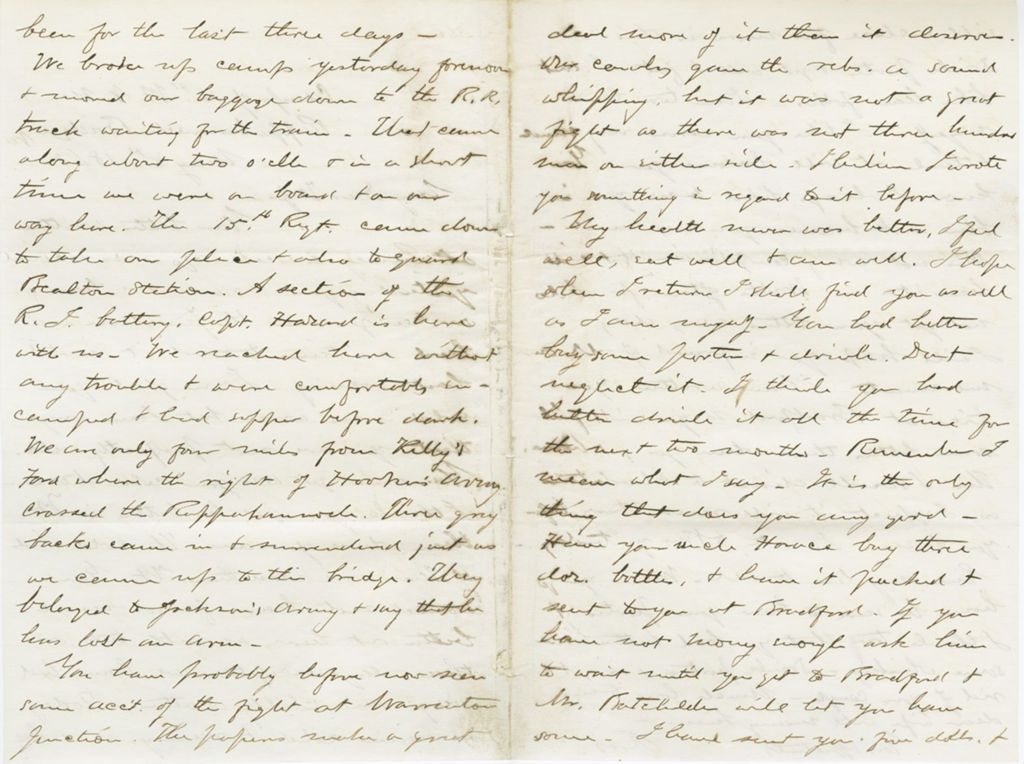 been for the last three days —
We broke up camp yesterday forenoon
+ moved our baggage down to the R.R.
track waiting for the train - That came
along about two o'clk + in a short
time we were on board + on our
way here. The 15th Regt. came down
to take our place + also to guard
Bealton Station. A section of the
R.I. battery, Capt. Hazard is here
with us - We reached here without
any trouble + were comfortably en-
camped + had supper before dark.
We are only four miles from Kelly's
Ford where the right of Hooker's Army
crossed the Rappahannock. Three grey
backs came in + surrendered just as
we came up to this bridge. They
belonged to Jackson's army + say that he
has lost an arm -
You have probably before now seen
some acct. of the fight at Warrenton
Junction. The papers make a great
deal more of it than it deserves.
Our cavalry gave the rebs. a sound
whipping, but it was not a great
fight as there was not three hundred
men on either side. I believe I wrote
you something in regard to it before -
- My health never was better, I feel
well, eat well + am well. I hope
when I return I shall find you as well
as I am myself - You had better
buy some porter + drink. Dont
neglect it. I think you had
better drink it all the time for
the next two months - Remember I
mean what I say - It is the only
thing that does you any good -
Have your uncle Horace buy three
doz. bottles, + have it packed +
sent to you at Bradford. If you
have not money enough ask him
to wait until you get to Bradford +
Mr. Batchelder will let you have
some - I have sent you five dolls. +